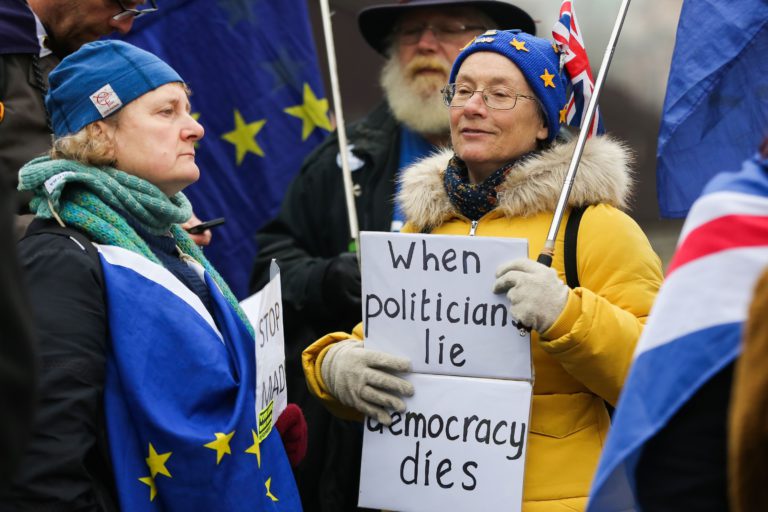 STOP
When
politicians
lie
democracy
dies